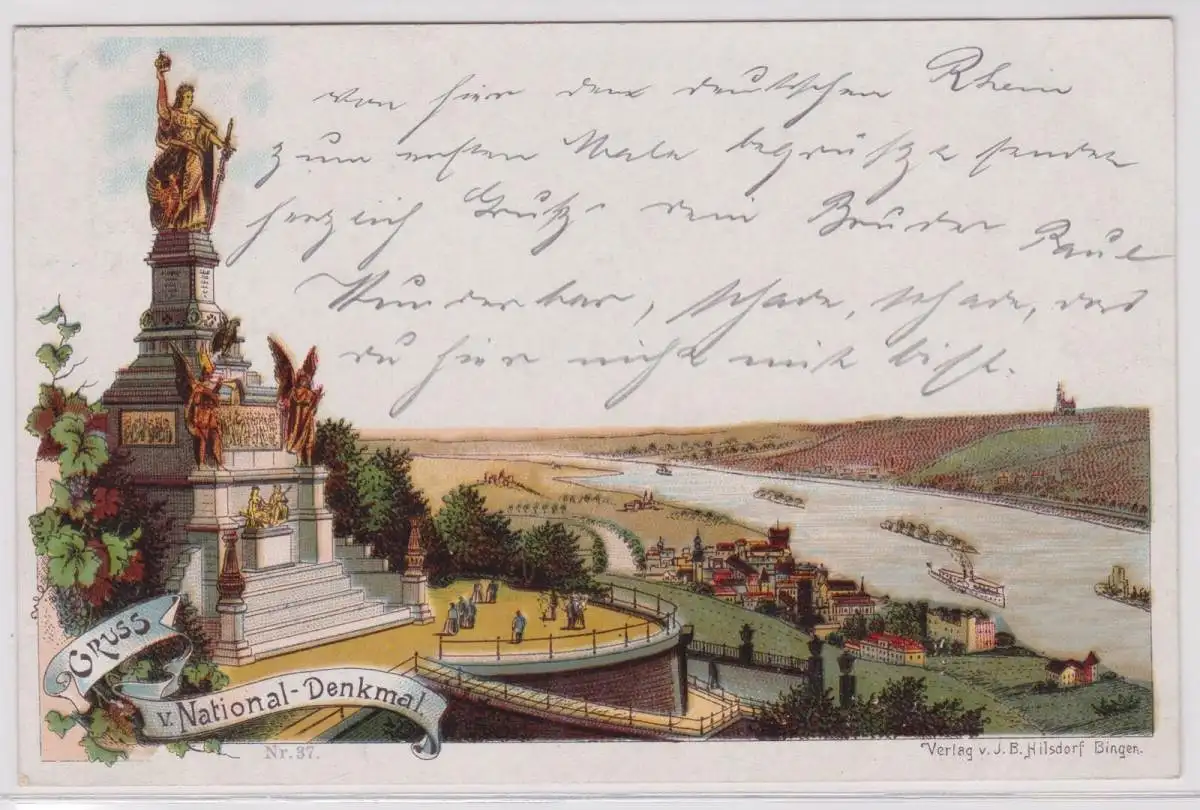 von hier den deutschen Rhein
zum ersten Male begrüßt sendet
herzlich Gruß dein Bruder Paul
Wunderbar, schade, schade, das
du hier nicht mit bist.
GRUSS
v. National-Denkmal
Nr. 37.
Verlag v. J. B. Hilsdorf Bingen.